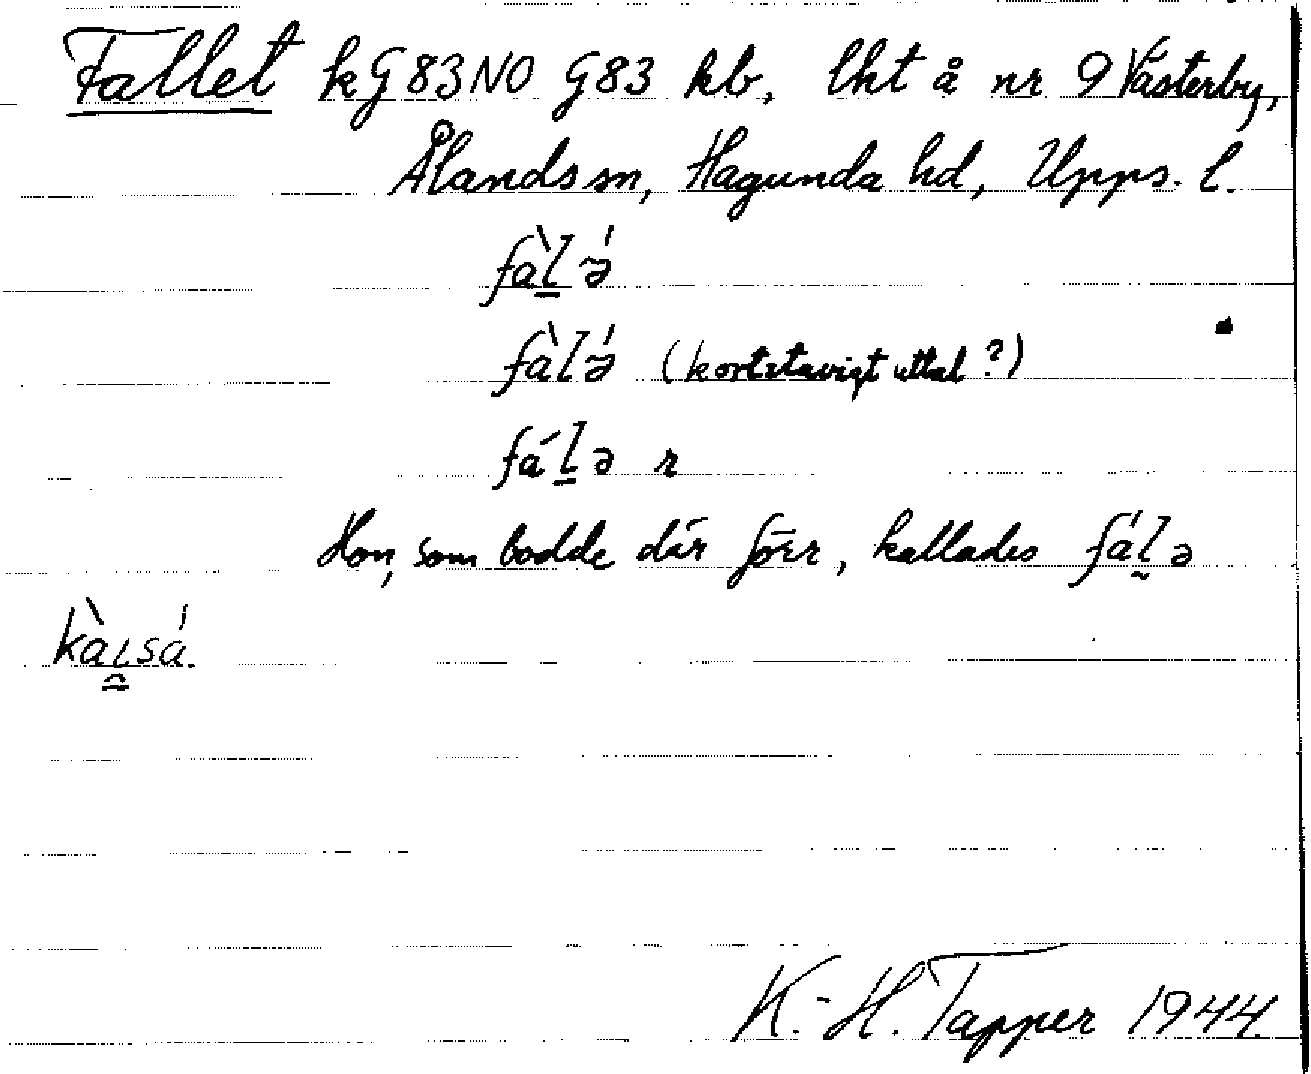 Fallet kG83NO G83 kb, lht å nr 9 Västerby,
Ålands sn, Hagunda hd, Upps. l.
fàl̲ə́
fàlə́ (kortstavigt uttal?)
fál̲ə r
Hon, som bodde där förr, kallades fál̰ə
kàɩsá.
K.-H. Tapper 1944.